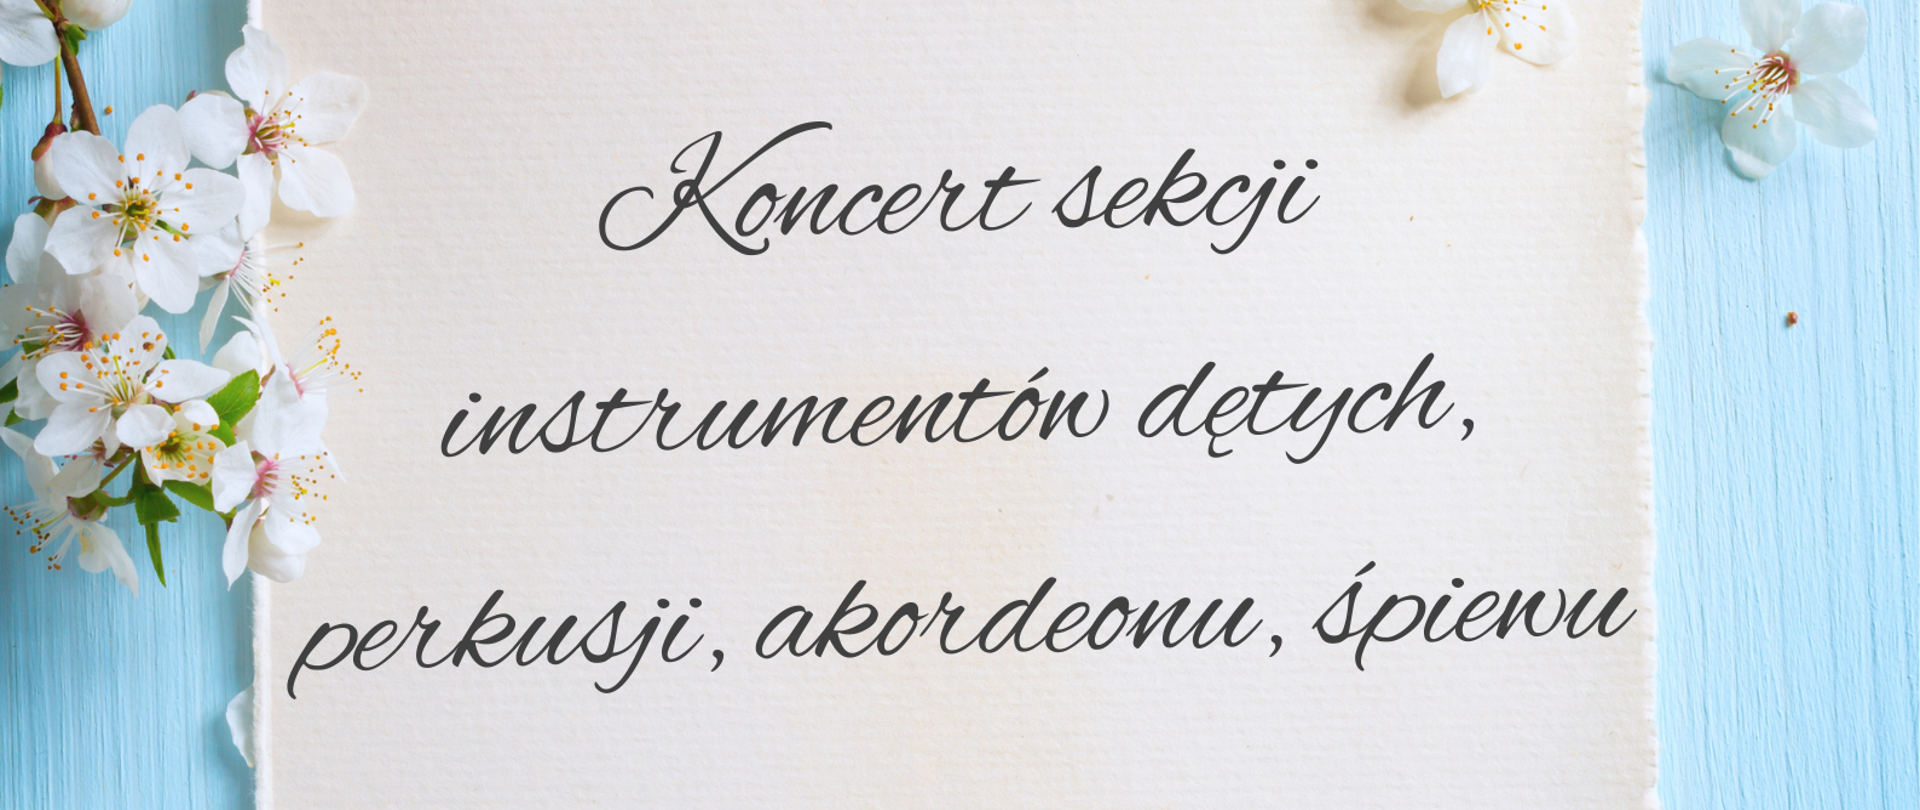 Koncert sekcji
instrumentów dętych,
perkusji, akordeonu, śpiewu